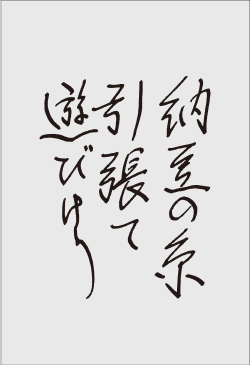 納豆の糸
引張て
遊びけり